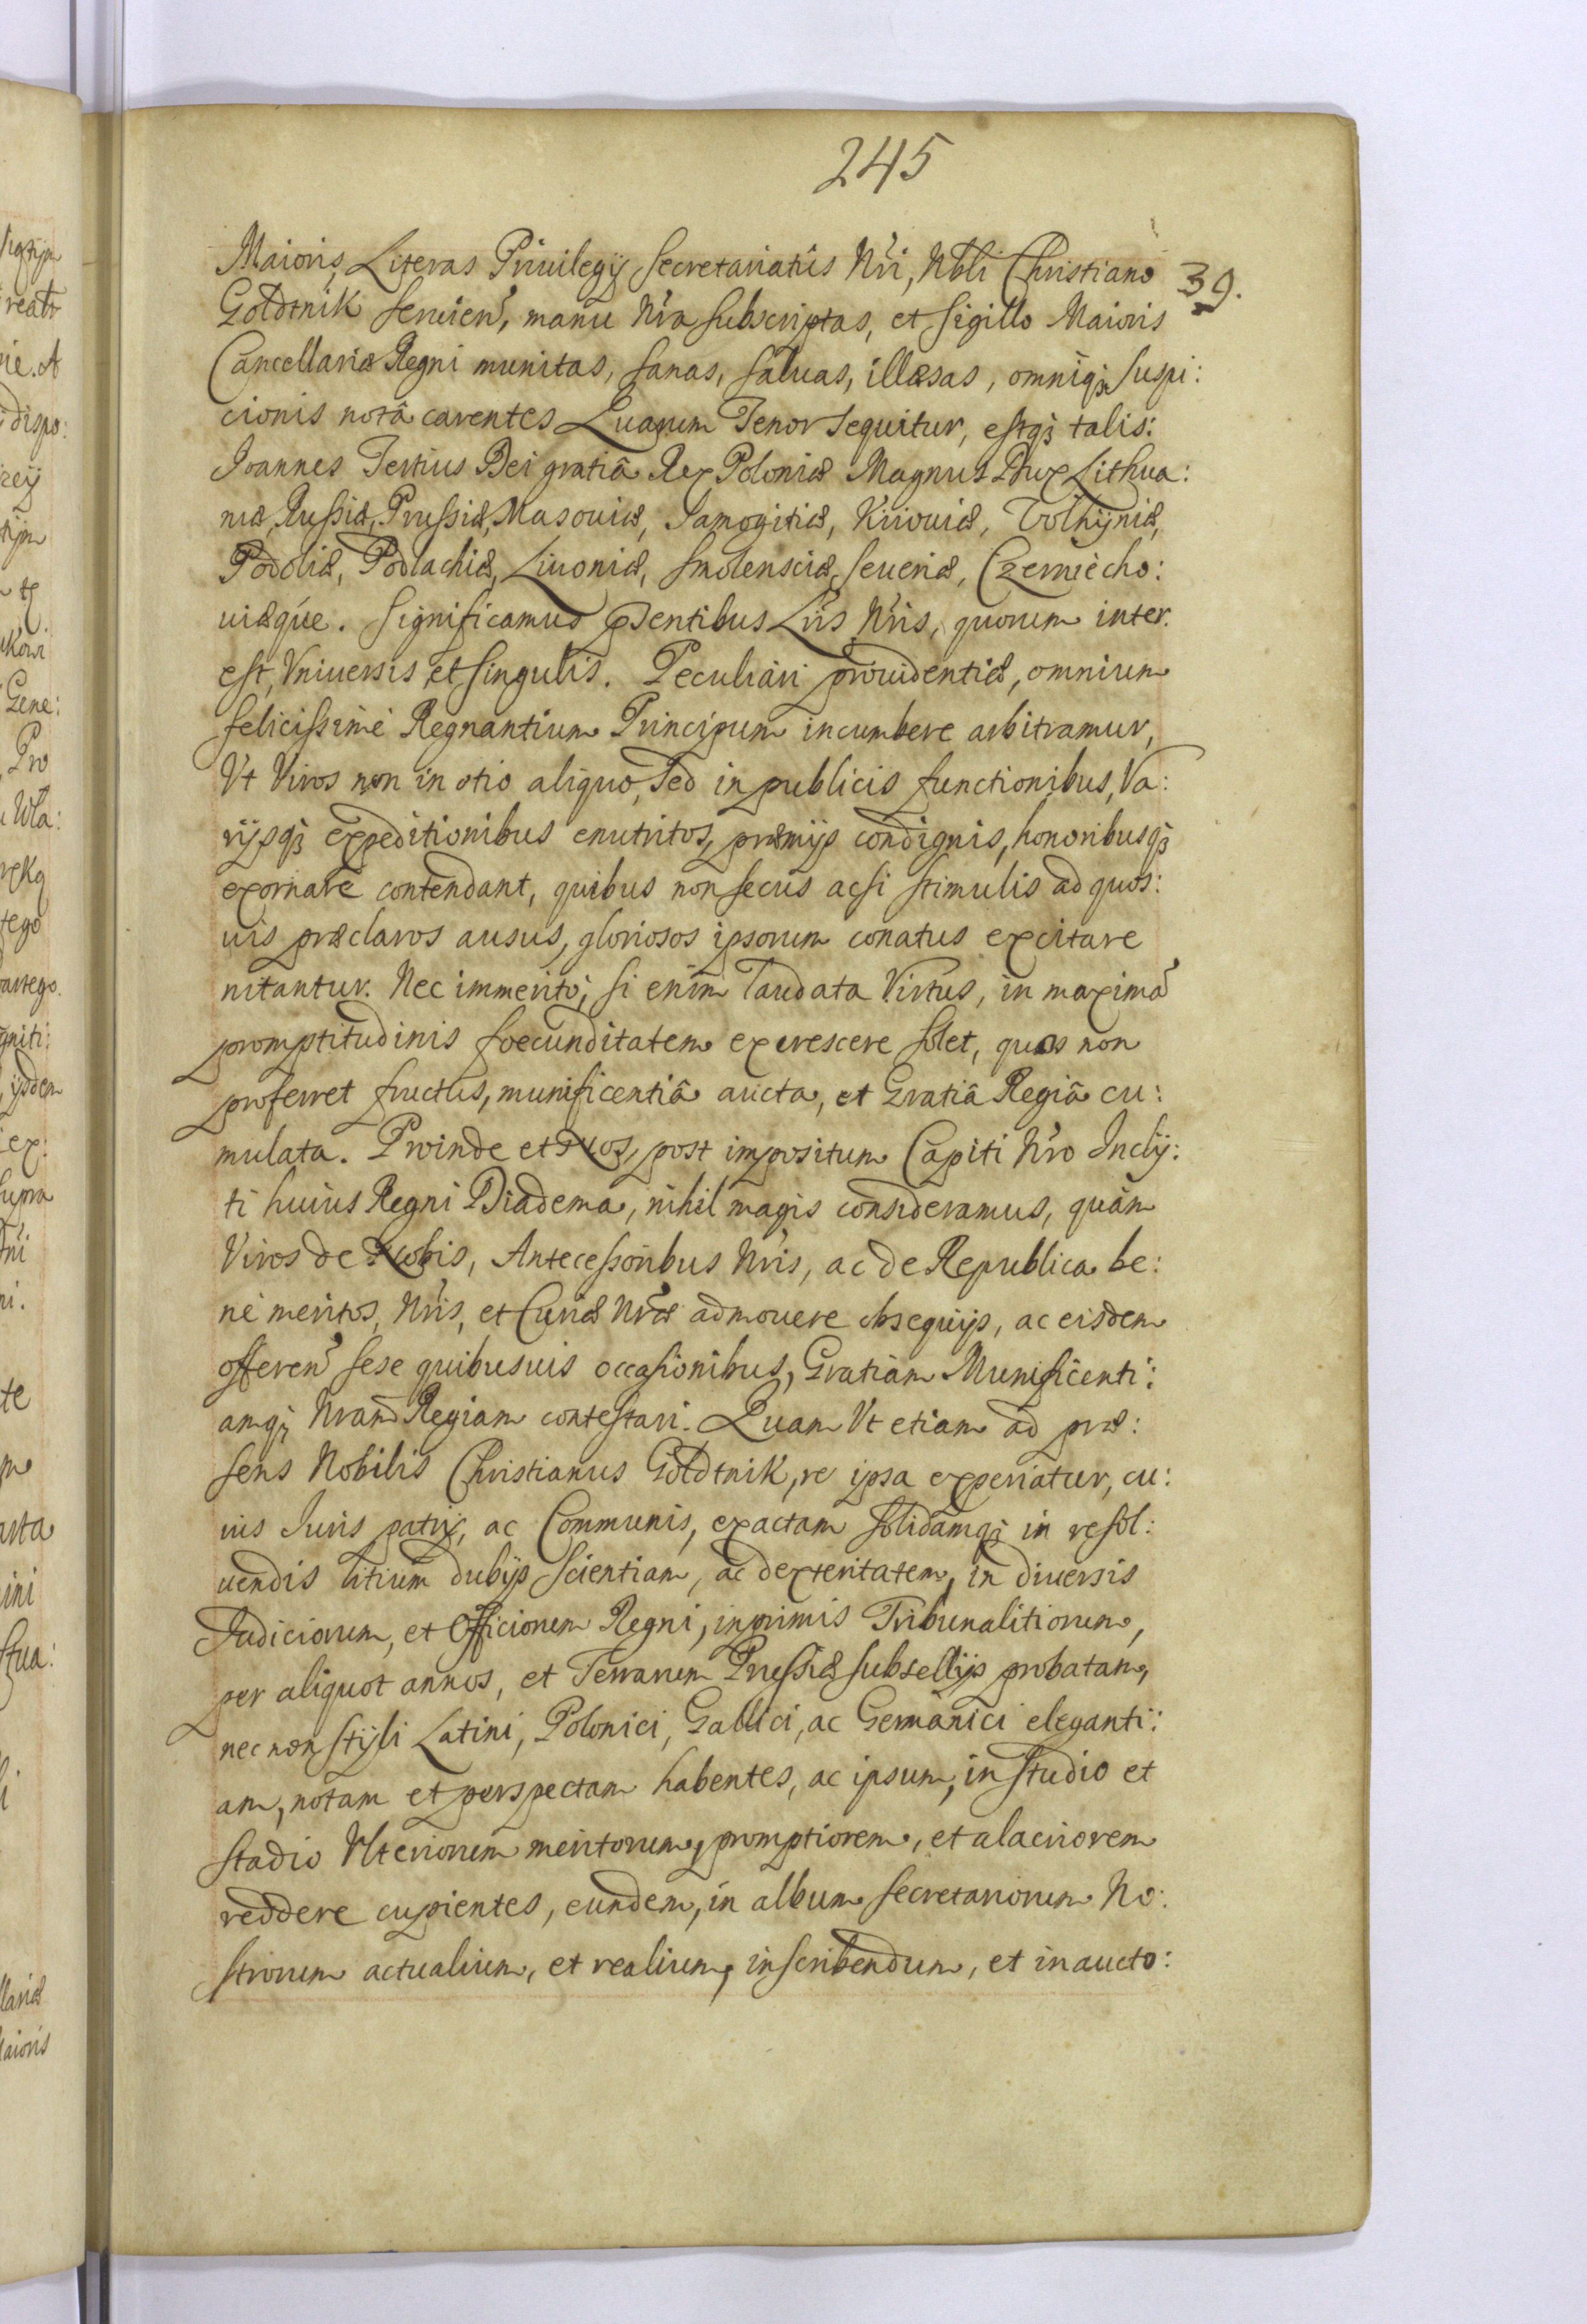 245
Maioris, Literas Priuilegij Secretariatûs Nr̃i, Nbli Christiano
39.
Goldtnik seruien̄, manu Nr̃a subscriptas, et Sigillo Maioris
Cancellariæ Regni munitas, sanas, saluas, illæsas, omniq̃ suspi:
cionis notâ carentes Quarum Tenor sequitur, estq̃ talis:
Joannes Tertius Dei gratiâ Rex Poloniæ Magnus Dux Lithua:
niæ, Russiæ, Prussiæ, Masouiæ, Samogitiæ, Kiiouiæ, Volhyniæ,
Podoliæ, Podlachiæ, Liuoniæ, Smolensciæ, Seueriæ, Czerniecho:
uiæq́ue. Significamus p̃sentibus Lr̃is Nr̃is, quorum inter.
est, Vniuersis et singulis. Peculiari prouidentiæ, omnium
felicissimè Regnantium Principum incumbere arbitramur,
Vt Viros non in otio aliquo, sed in publicis functionibus, Va:
rijsq̃ expeditionibus enutritos, præmijs condignis, honoribusq̃
exornare contendant, quibus non secus acsi stimulis ad quos:
uis præclaros ausus, gloriosos ipsorum conatus excitare
nitantur. Nec immeritò; si enim laudata Virtus, in maximã
promptitudinis foecunditatem excrescere solet, quos non
proferret fructus, munificentiâ aucta, et Gratiâ Regiâ cu:
mulata. Proinde et Nos, post impositum Capiti Nr̃o Incly:
ti huius Regni Diadema, nihil magis consideramus, quàm
Viros de Nobis, Antecessoribus Nr̃is, ac de Republica be:
nè meritos, Nr̃is, et Curiæ Nr̃æ admouere obsequijs, ac eisdem
offeren̄ sese quibusuis occasionibus, Gratiam Munificenti:
amq̃ Nram̃ Regiam contestari. Quam Vt etiam ad præ:
sens Nobilis Christianus Goldtnik, re ipsa experiatur, cu:
ius Iuris patrij, ac Communis, exactam solidamq̃ in resol:
uendis litium dubijs scientiam, ac dexteritatem, in diuersis
Judiciorum, et Officiorum Regni, inprimis Tribunalitiorum,
per aliquot annos, et Terrarum Prussiæ subsellijs probatam,
nec non styli Latini, Polonici, Gallici, ac Germanici eleganti:
am, notam et perspectam habentes, ac ipsum, in studio et
stadio Vlteriorum meritorum, promptiorem, et alacriorem
reddere cupientes, eundem, in album Secretariorum No:
strorum actualium, et realium, inscribendum, et inaucto: